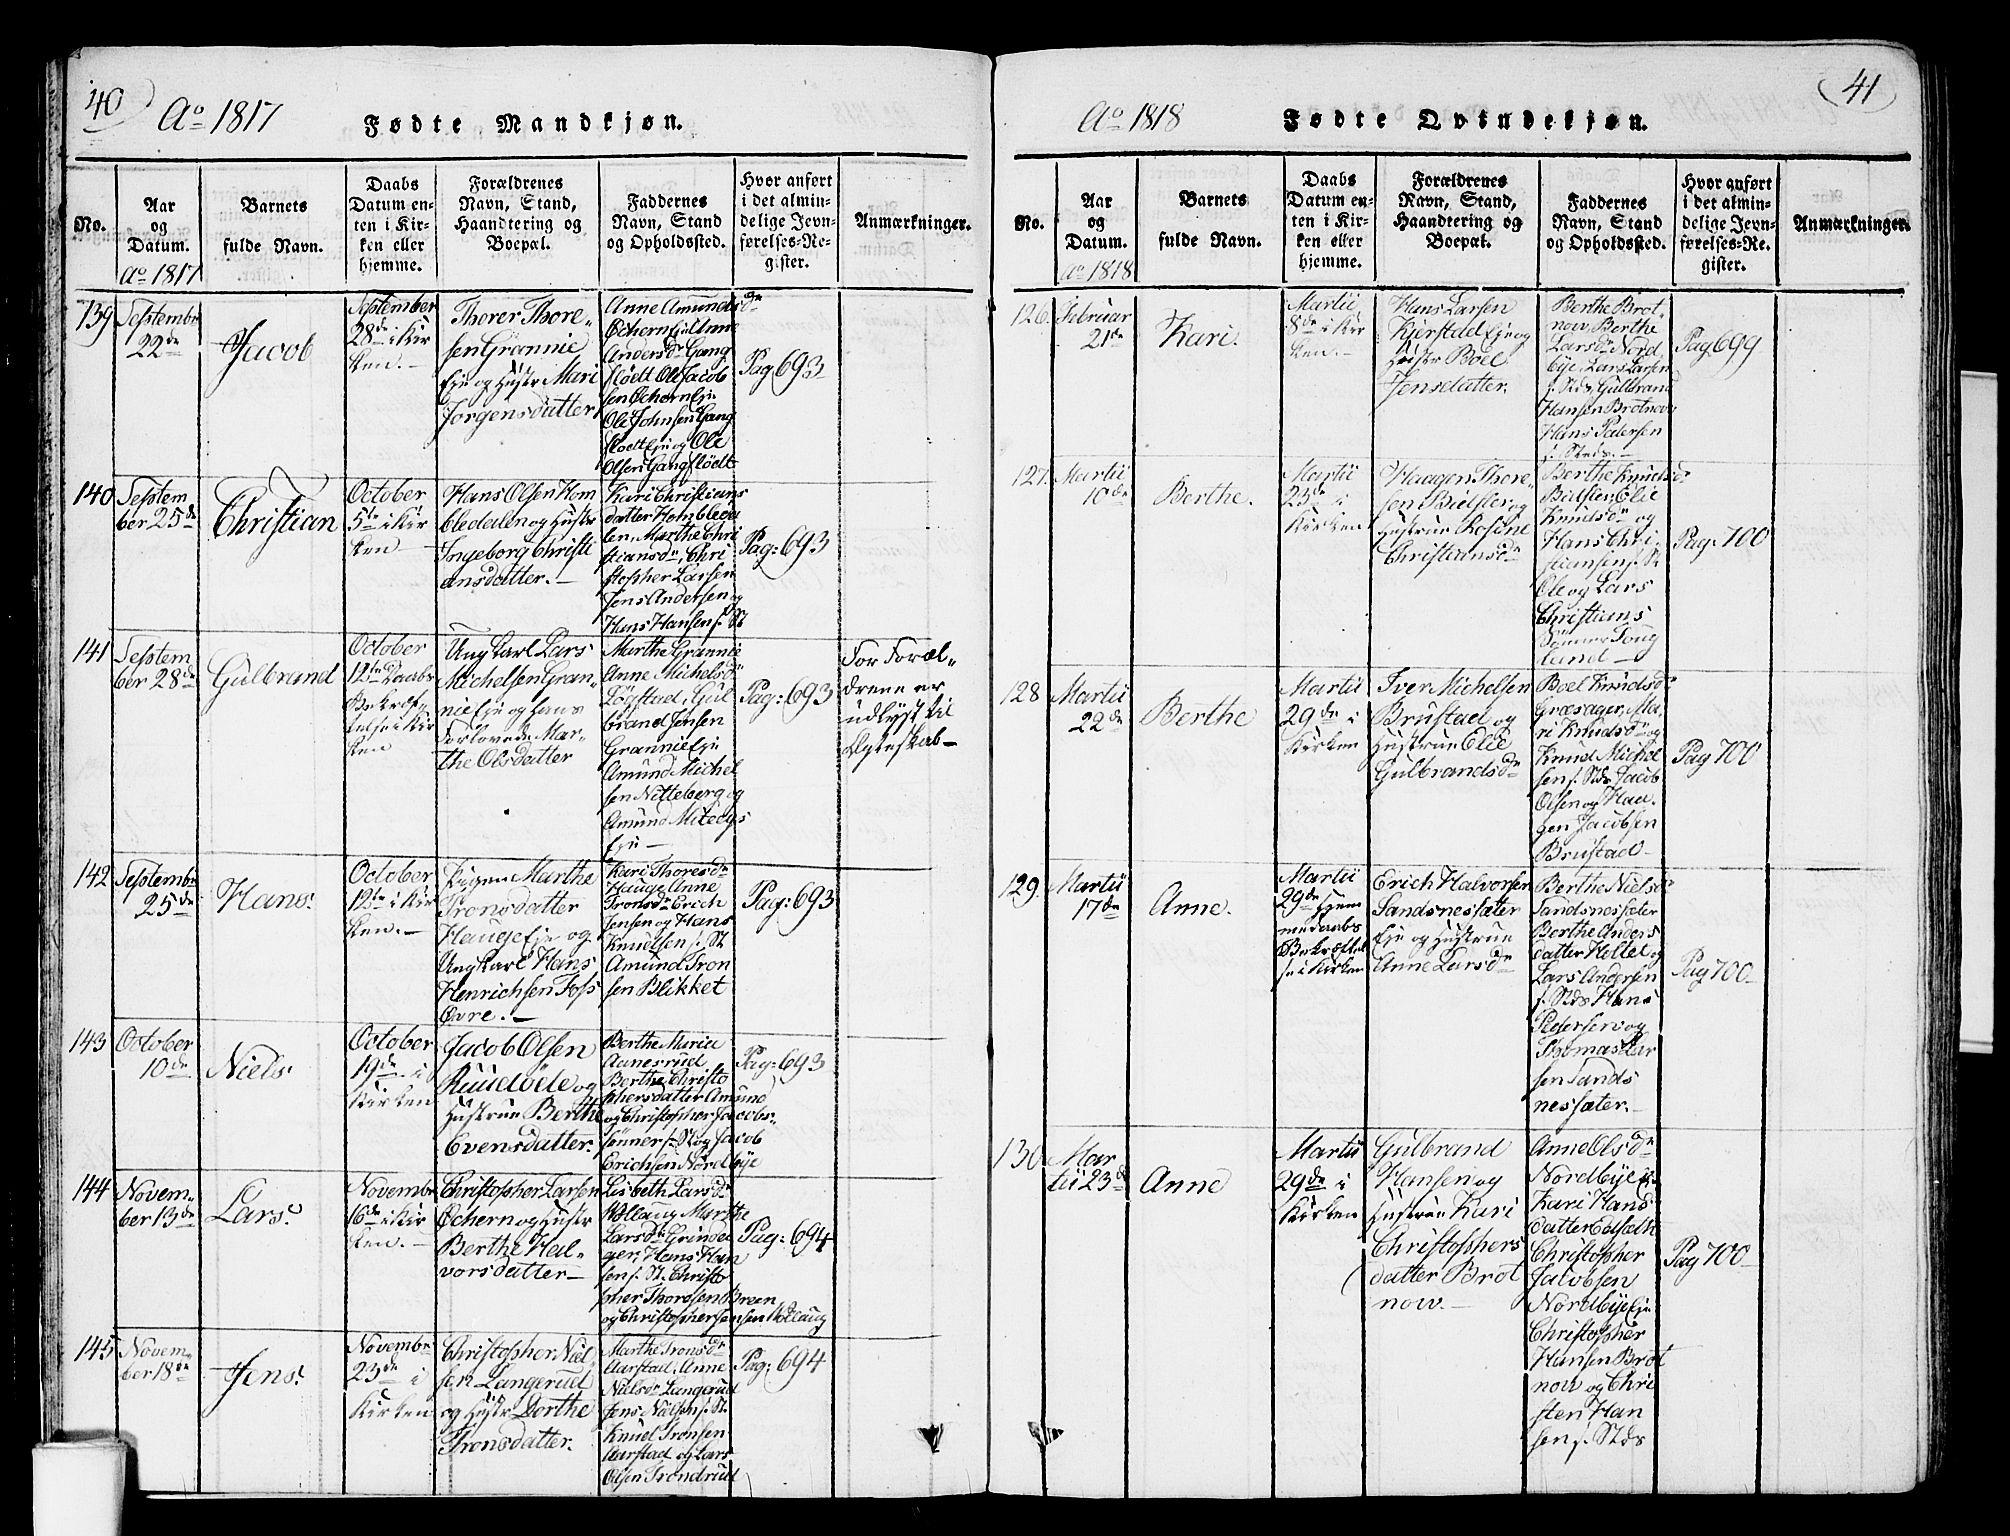 40
Ao 1817
Fødte Mandkjøn.
No.
Aar
og
Datum.
Ao 1817
Barnets
fulde Navn.
Daabs
Datum en-
ten i Kir-
ken eller
hjemme.
Forældrenes
Navn, Stand,
Haandtering og
Boepæl.
Faddernes
Navn, Stand
og Opholdssted.
Hvor anført
i det almin-
delige Jevn-
førelses-Re-
gister.
Anmærkninger.
139
Septembr
22de
Jacob
September
28de i Kir
ken.-
Thorer Thore-
sen Grannie
Eje og Hustr Mari
Jørgensdatter
Anne Amundsdr
Ochern Eje Anne
Andersdr Gang
flødt Ole Jacob
sen Ochern Eje
Ole Johnsen Gang
floedt Eje og Ole
Olsen Gangflødt
Pag 693
140
Septem
ber 25de
Christian
October
5te i Kir
ken-
Hans Olsen Hom
bledalen og Hustr
Ingeborg Christi
ansdatter.-
Kari Christians
datter Hombleda
len, Marthe Chri
stiansdr, Chri
stopher Larsen
Jens Andersen og
Hans Hansen s. St
Pag: 693
141
Septem
ber 28de
Gulbrand
October
12te Daabs
Bekræf-
telse i Kir
ken
Ungkarl Lars
Michelsen Gran-
nie Eje og Hans
Forlovede Mar-
the Olsdatter
Marthe Grannie
Anne Michelsdr
Løgstad, Gul
brand Jensen
Grannie Eje
Amund Michel
sen Nitteberg og
Amund Mitedgs
Eje-
Pag: 693
For Foræl-
drene er
udlyst til
Ægteskab-
142
Septembr
25de
Hans.
October
12te i Kir
ken.-
Pigen Marthe
Tronsdatter
Hauge Eje og
Ungkarl Hans
Henrichsen Foss
Øvre.-
Kari Thoresdr
Hauge Anne
Tronsdr Erich
Jensen og Hans
Knudsen s. St
Amund Tron
sen Blikket
Pag: 693
143
October
10de
Niels.
October
19de i
Kirken
Jacob Olsen
Ruudløkke og
Hustrue Berthe
Evensdatter.
Berthe Maria
Aanesrud
Berthe Christo
phersdatter Amund
og Christopher Jacobs-
sønner s. St og Jacob
Erichsen Nordbye
Pag: 693
144
Novem-
ber 13de
Lars.
Novembr
16de i Kir
ken.-
Christopher Larsen
Ochern og Hustr
Berthe Hal-
vorsdatter-
Lisbeth Larsdr
Wollaug Marthe
Larsdr Grinda
ger, Hans Han
sen s. St. Christo
pher Thordsen Breen
og Christophersensen Wollaug
Pag: 694
145
Novem-
ber 18de
Jens.
Novembr
23de i
Kirken
Christopher Niel-
sen Langerud
og Hustr Dorthe
Tronsdatter.
Marthe Tronsdr
Aarstad, Anne
Nielsdr Langerud
Jens Nielsen s. St.
Knud Tronsen
Aarstad og Lars
Olsen Trondrud
Pag: 694
41
Ao 1818
Fødte Qvindekjøn.
No.
Aar
og
Datum.
Ao 1818
Barnets
fulde Navn.
Daabs
Datum en-
ten i Kir-
ken eller
hjemme.
Forældrenes
Navn, Stand,
Haandtering og
Boepæl.
Faddernes
Navn, Stand
og Opholdssted.
Hvor anført
i det almin-
delige Jevn-
førelses-Re-
gister.
Anmærkninger.
126.
Februar
21de
Kari.
Martii
8de i Kir
ken.-
Hans Larsen
Kjerstad Eje og
Hustr Boel
Jensdatter.
Berthe Brot-
now, Berthe
Larsdr Nord
bye, Lars Larsen
s. Stds, Gulbrand
Hansen Brotnow
Hans Pedersen
s. Stds.-
Pag 699
127.
Martii
10de
Berthe.
Martii
23de i
Kirken
Haagen Thore-
sen Bielsler og
Hustrue Rosine
Christiansdr
Berthe Knudsdr
Bielsler, Elie
Knudsdr og
Hans Chri-
stiansen s. St
Ole og Lars
Christians
Sønner Toug
lund-
Pag. 700
128
Martii
22de
Berthe
Martii
29de i
Kirken
Iver Michelsen
Brustad og
Hustrue Elie
Gulbrandsdr
Boel Knudsdr
Græsager, Ma-
ri Knudsdr og
Knud Michel
sen s. Stds Jacob
Olsen og Haa-
gen Jacobsen
Brustad-
Pag 700
129.
Martii
17de
Anne.
Martii
29de Hjem
medaabs
Bekræftel
se i Kirken
Erich Halvorsen
Sandsnessæter
Eje og Hustrue
Anne Larsdr
Berthe Nielsdr
Sandsnessæter
Berthe Anders
datter Hellet og
Lars Andersen
s. Stds Hans
Pedersen og
Thomas Lar
sen Sands
nessæter.-
Pag 700-
130
Mar
tii 23de
Anne
Martii
29de i
Kirken
Gulbrand
Hansen og
Hustrue Kari
Christophers
datter Brot
now.-
Anne Olsdr
Nordbye Eje
Kari Hans
datter
Christopher
Jacobsen
Nordbye Eje
Christopher
Hansen Brot
now og Chri
sten Han
sen s. Stds
Pag 700-